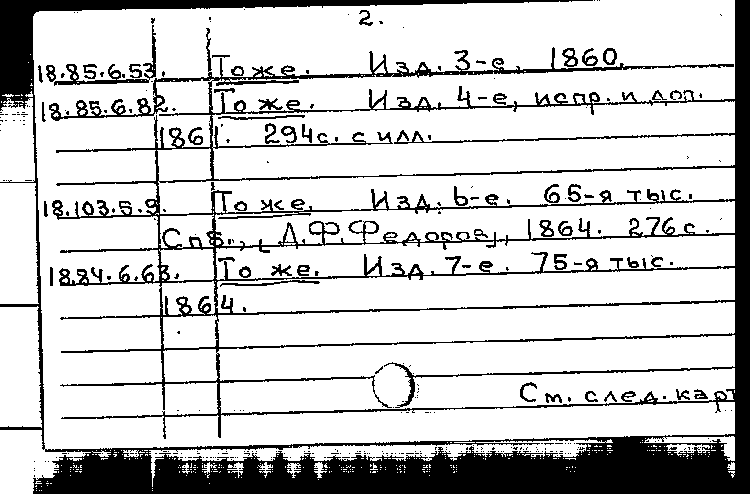 2.
18.85.6.53. То же. Изд. 3-е, 1860.
18.85.6.82. То же. Изд. 4-е, испр. и доп.
1861. 294с. с илл.
18.103.5.9. То же. Изд. 6-е. 65-я тыс.
Спб., [А.Ф.Федоров], 1864. 276с.
18.84.6.63. То же. Изд. 7-е. 75-я тыс.
1864.
См. след. карт